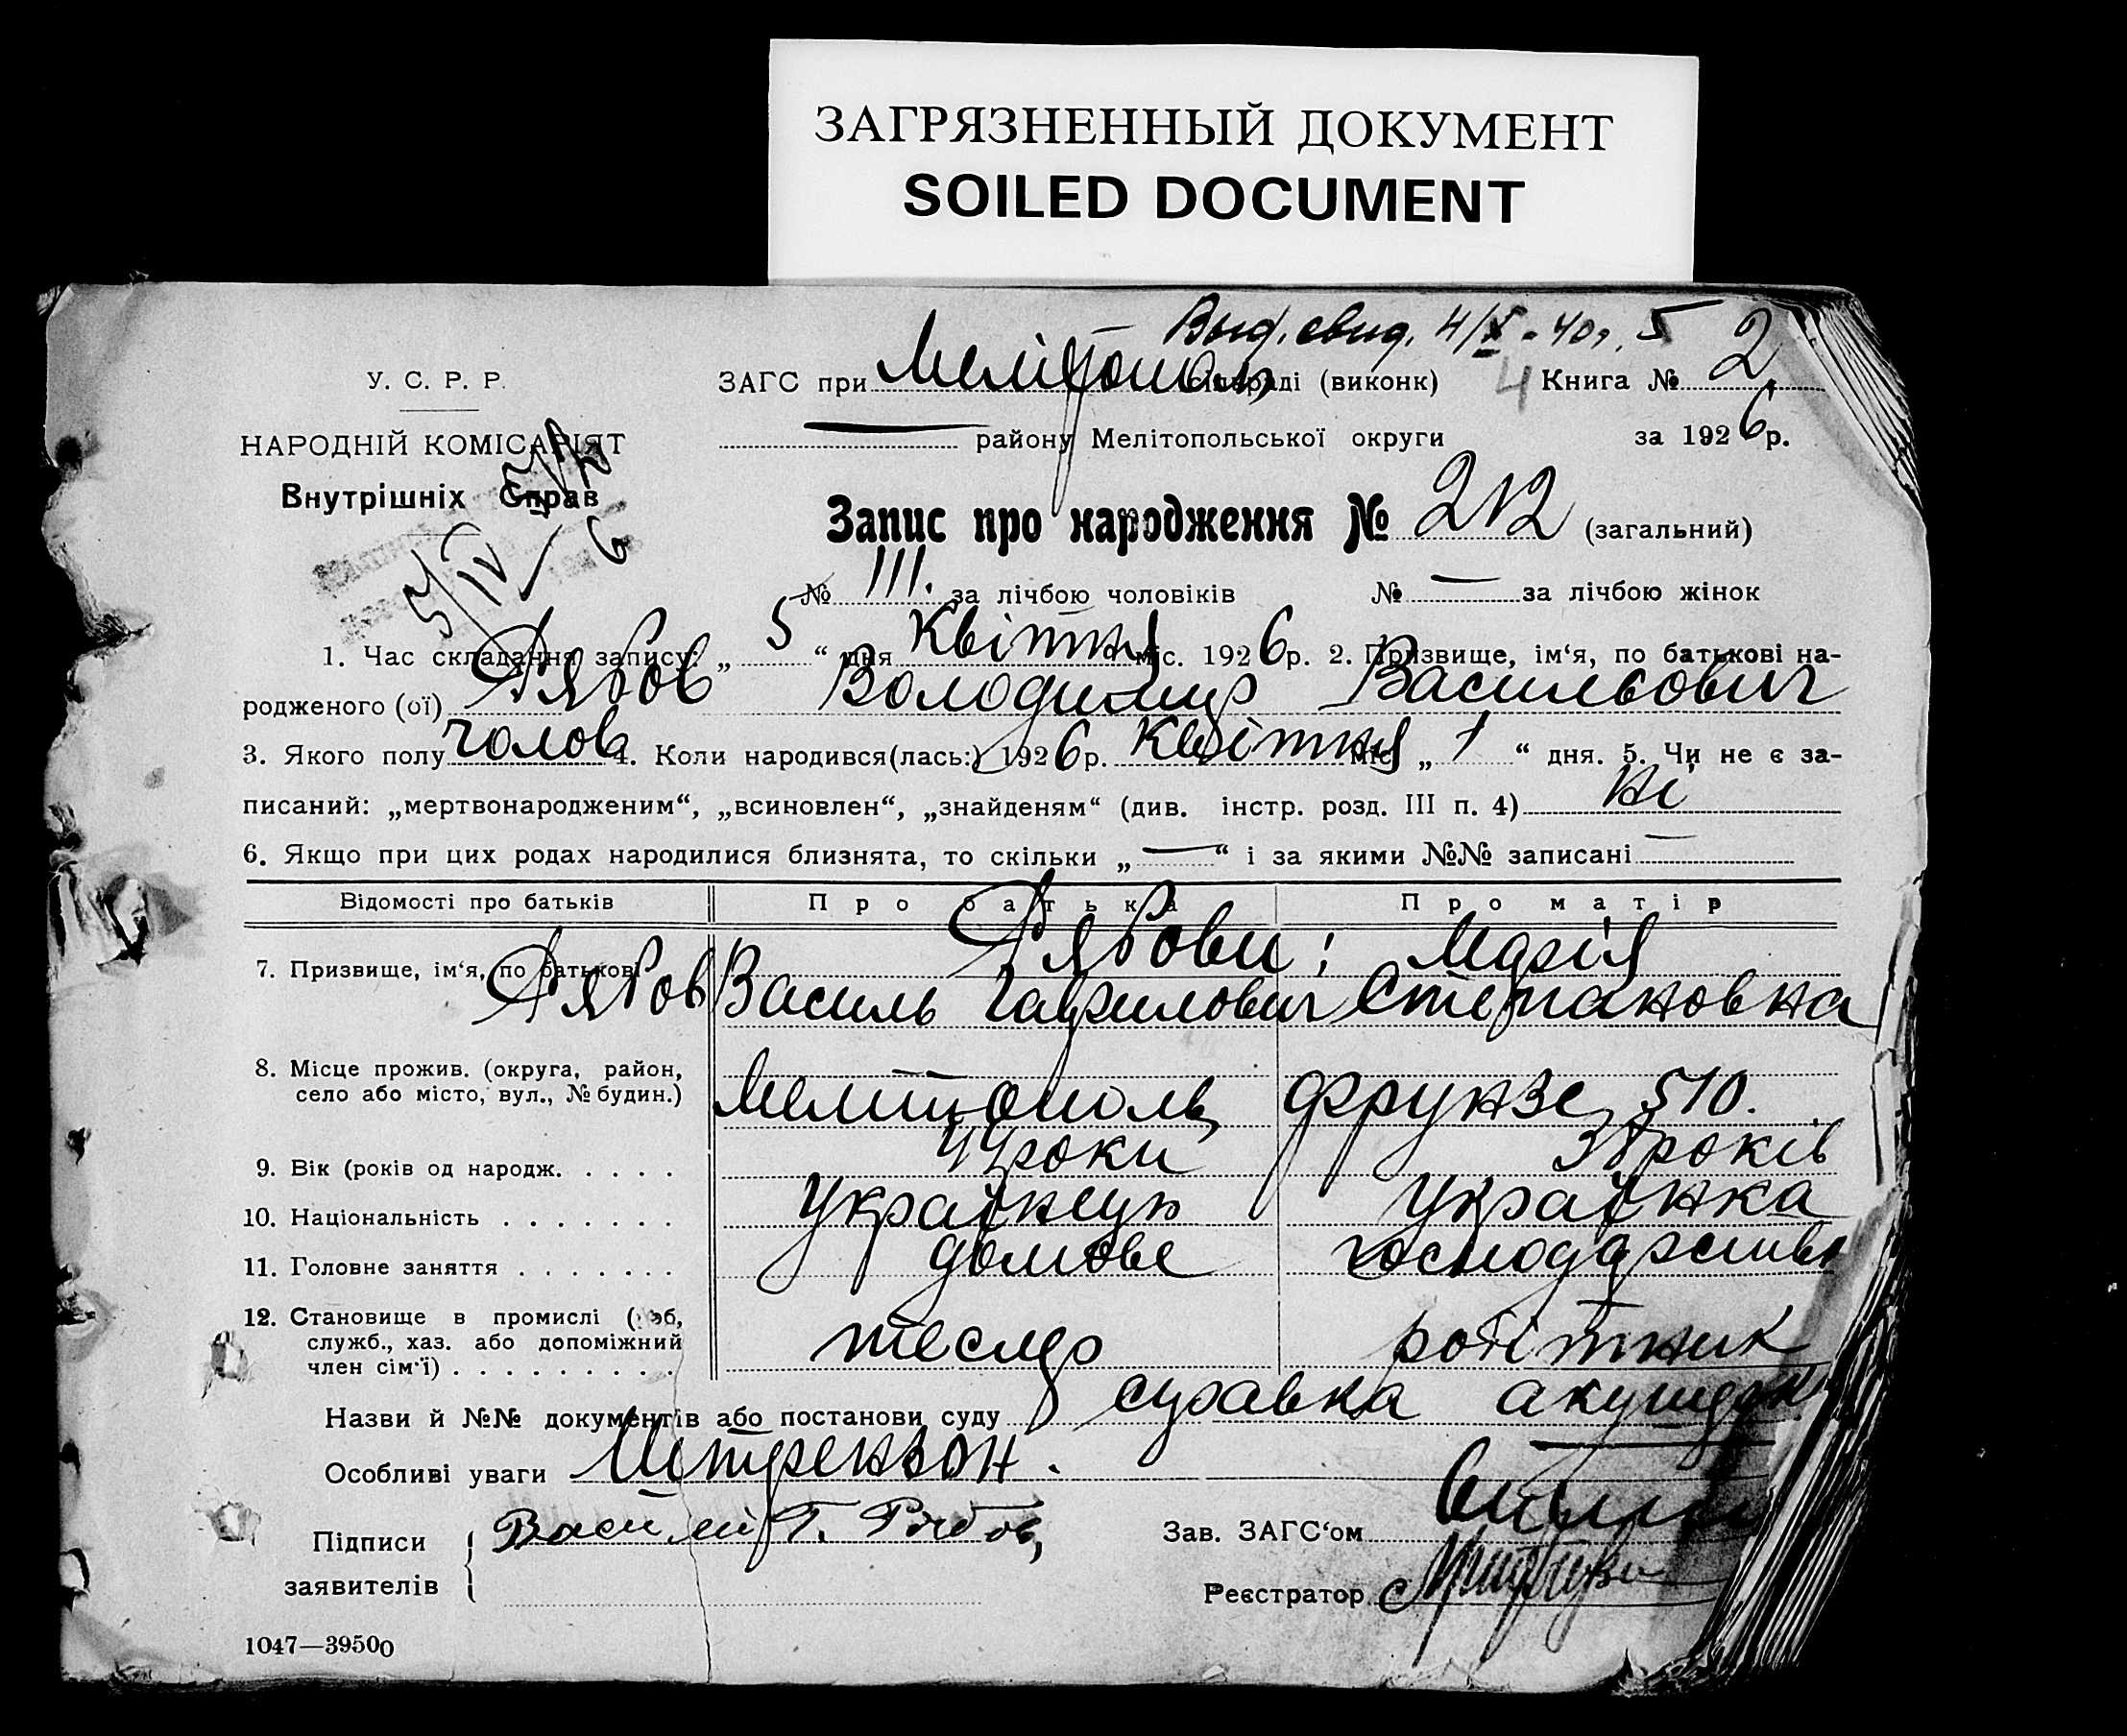 ЗАГРЯЗНЕННЫЙ ДОКУМЕНТ
SOILED DOCUMENT
Выд. свид. 4/X-40г. 5
У. С. Р. Р.
ЗАГС при Мелітополь раді (виконк) 4 Книга № 2
НАРОДНІЙ КОМІСАРІЯТ
— району Мелітопольської округи за 1926 р.
Внутрішніх Справ
Запис про народження № 212 (загальний)
5/IV 6
№ 111. за лічбою чоловіків № — за лічбою жінок
1. Час складання запису: „ 5 “ дня Квітня міс. 1926 р. 2. Призвище, ім‘я, по батькові на-
родженого (ої) Рябов Володимир Васильович
3. Якого полу чолов 4. Коли народився(лась:) 1926 р. Квітня міс „ 1 “ дня. 5. Чи не є за-
писаний: „мертвонародженим“, „всиновлен“, „знайденям“ (див. інстр. розд. III п. 4) ні
6. Якщо при цих родах народилися близнята, то скільки „ — “ і за якими №№ записані —
Відомості про батьків Про батька Про матір
Рябови: Марія
7. Призвище, ім‘я, по батькові
Рябов Василь Гаврилович Степановна
8. Місце прожив. (округа, район,
село або місто, вул., № будин.) Мелітополь, Фрунзе 510.
9. Вік (років од народж. . . . . 44 роки років
10. Національність . . . . . . . Українець Українка
11. Головне заняття . . . . . . . домове господарство
12. Становище в промислі (роб,
служб., хаз. або допоміжний тесляр робітник
член сім‘ї) . . . . . . . . .
Назви й №№ документів або постанови суду справка акушерк
Особливі уваги
Підписи Василий Г. Рябов Зав. ЗАГС‘ом
заявителів
Реєстратор
1047—39500